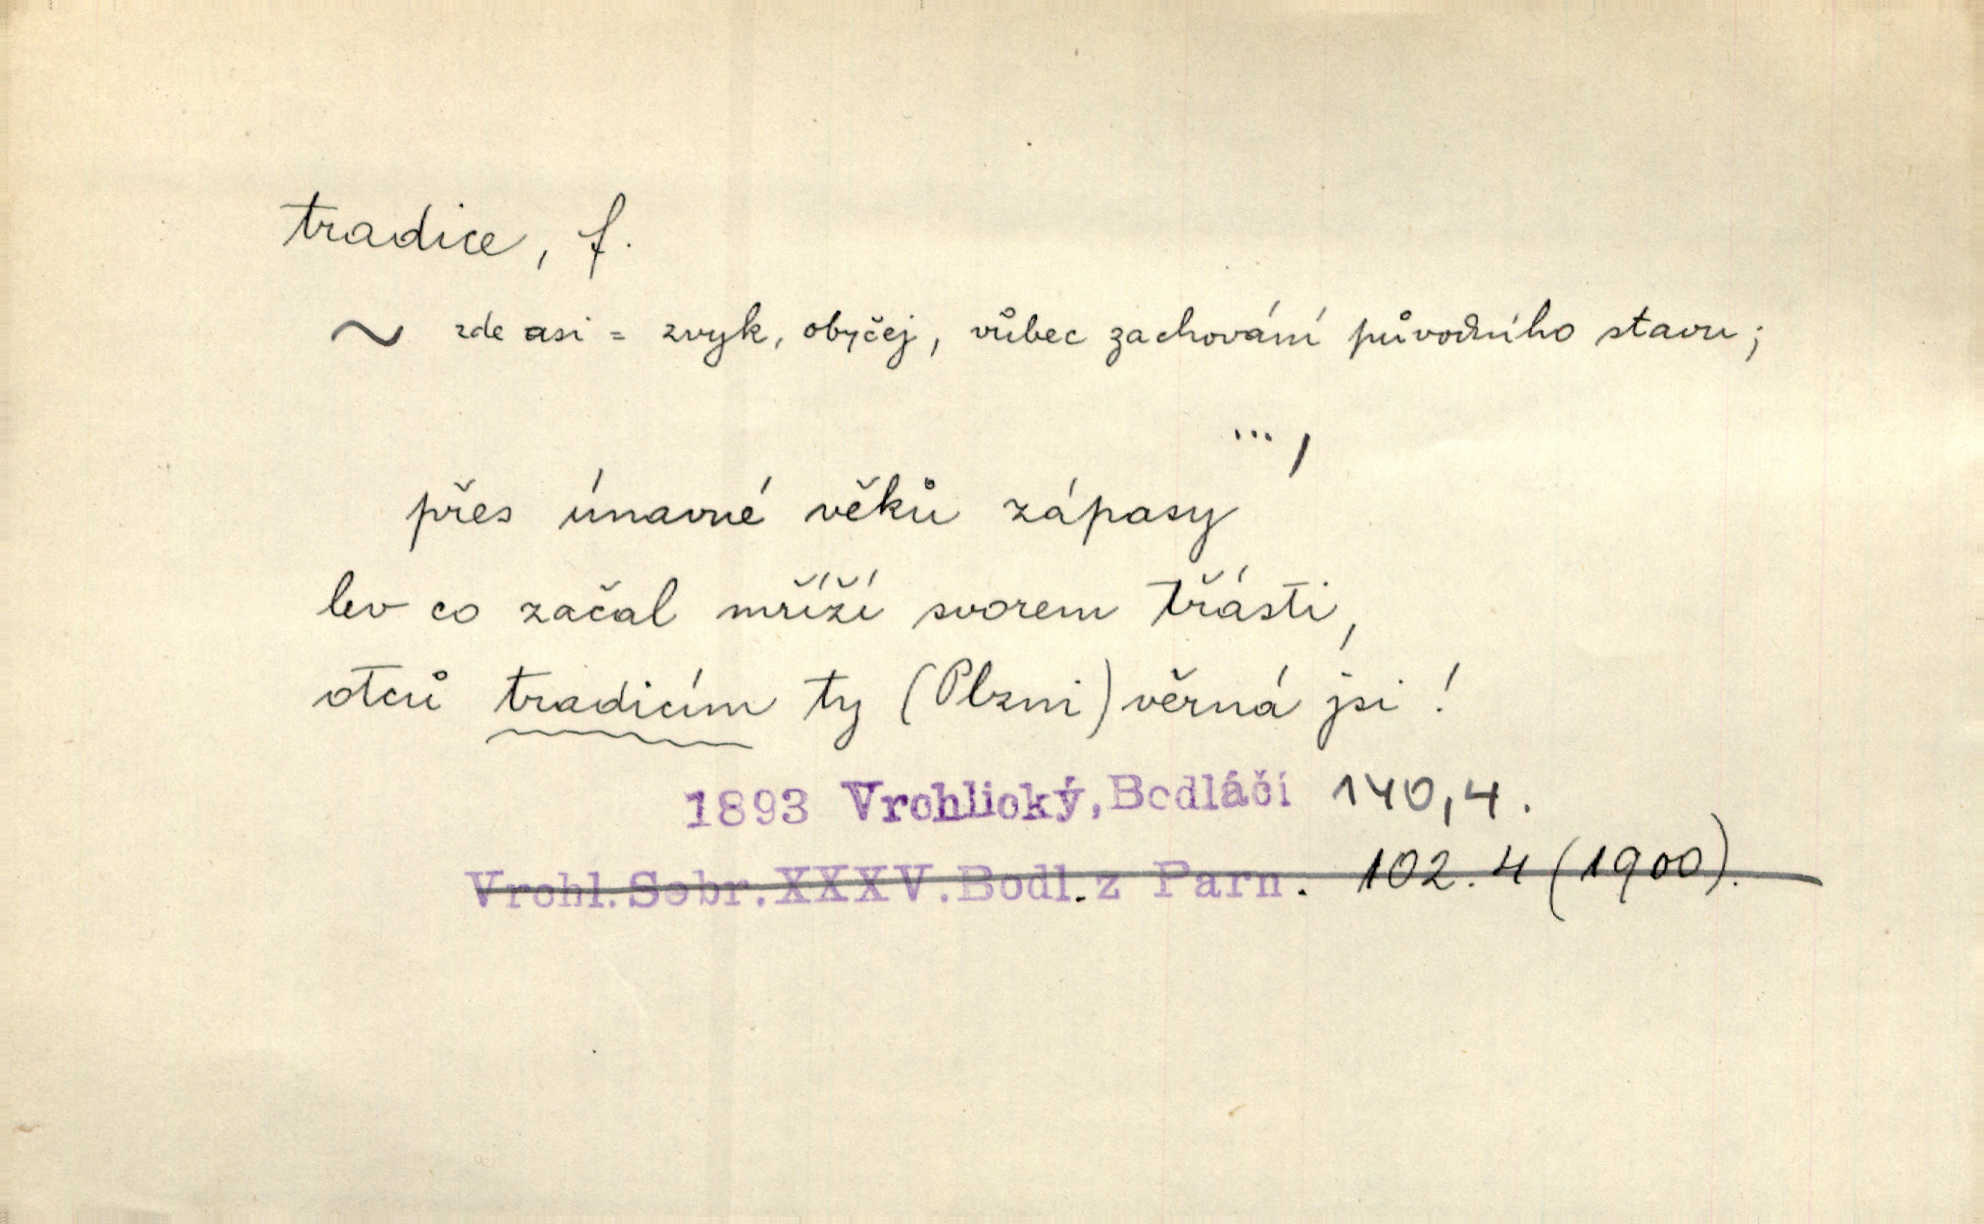 tradice, f.
~ zde asi = zvyk, obyčej, vůbec zachování původního stavu;
... ,
přes únavné věků zápasy
lev co začal mříží svorem třásti,
otců tradicím ty (Plzni) věrná jsi!
1893 Vrchlický, Bodláčí 140,4.
Vrchl. Sebr. XXXV. Bodl. z Parn. 102. 4 (1900).